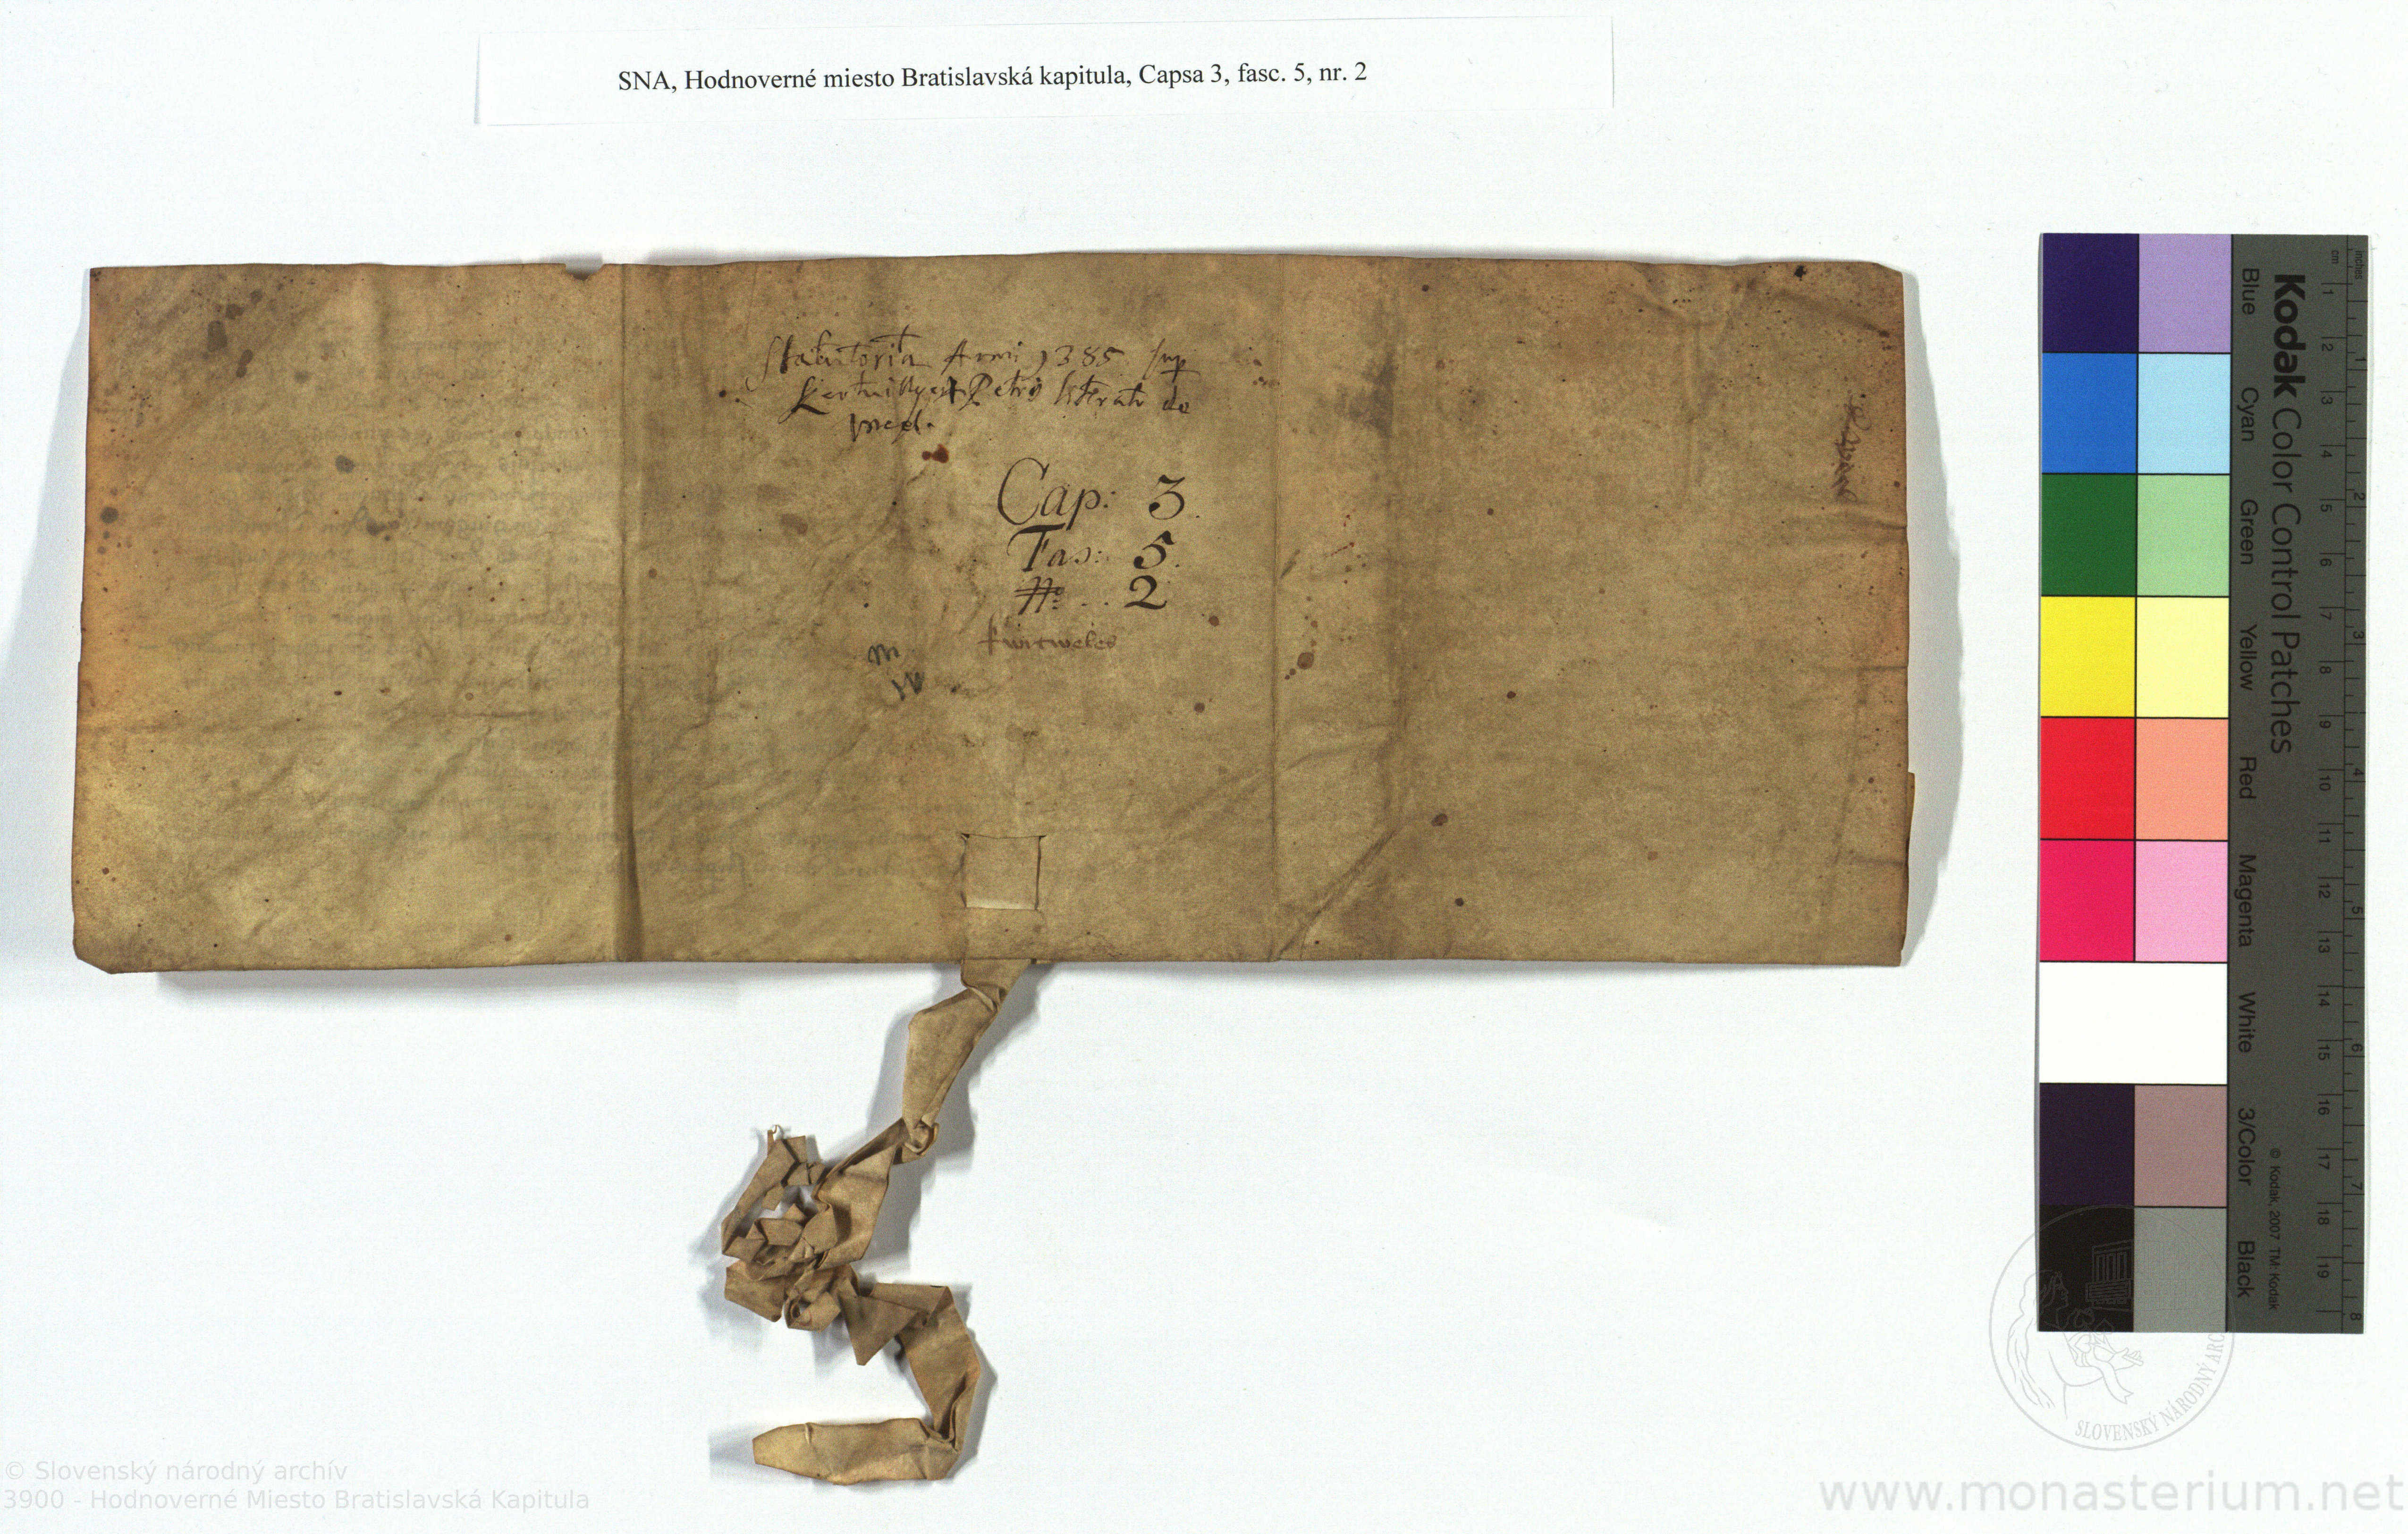 SNA, Hodnoverné miesto Bratislavská kapitula, Capsa 3, fasc. 5, nr. 2
Statutoria Anni 1385 sup
Petri litterati de
Cap: 3.
Fas: 5.
No .. 2
kwrtweles
Kodak Color Control Patches
Blue Cyan Green Yellow Red Magenta White 3/Color Black
© Kodak, 2007 TM: Kodak
cm 1 2 3 4 5 6 7 8 9 10 11 12 13 14 15 16 17 18 19
inches 1 2 3 4 5 6 7 8
SLOVENSKÝ NÁRODNÝ ARC
© Slovenský národný archív
3900 - Hodnoverné Miesto Bratislavská Kapitula
www.monasterium.net